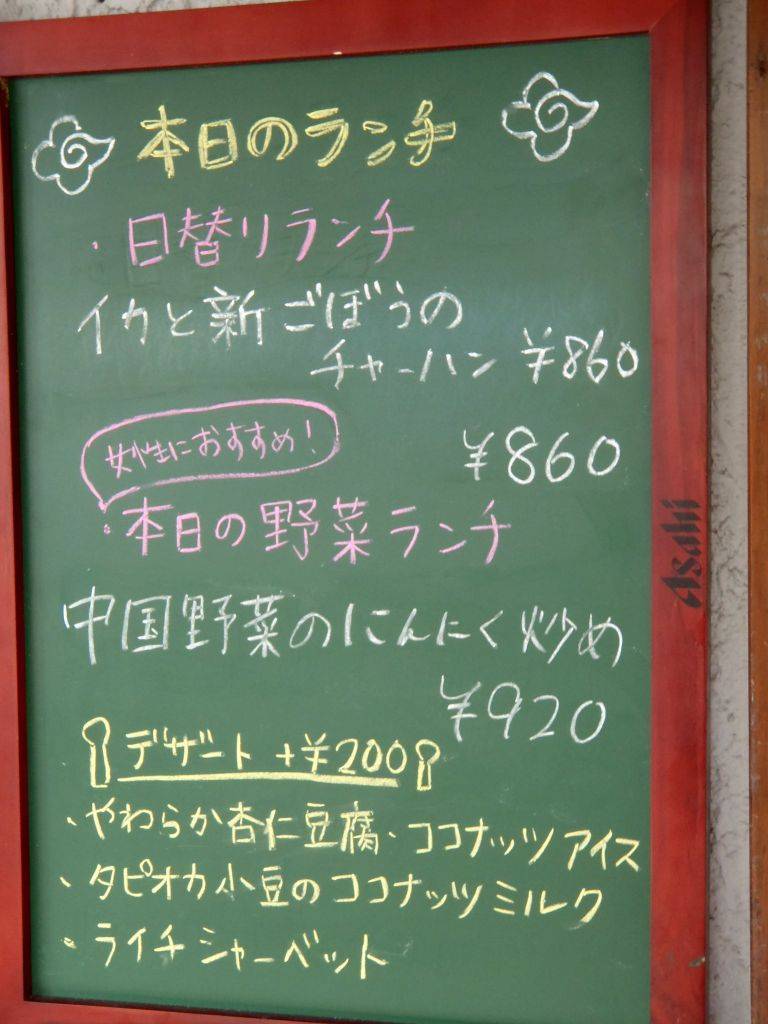 本日のランチ
・日替りランチ
イカと新ごぼうの
チャーハン ¥860
¥860
女性におすすめ!
・本日の野菜ランチ
中国野菜のにんにく炒め
¥920
デザート +¥200
・やわらか杏仁豆腐・ココナッツアイス
・タピオカ小豆のココナッツミルク
・ライチシャーベット
Asahi